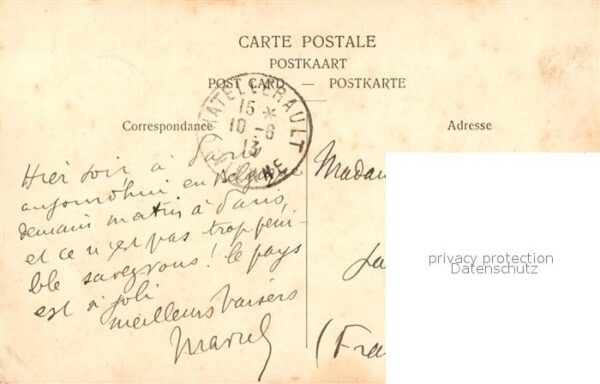 CARTE POSTALE
POSTKAART
POST CARD — POSTKARTE
CHATELLERAULT
16 *
10 - 8
13
VIENNE
Correspondance
Adresse
Hier soir à Paris
aujourd'hui en Belgique
demain matin à Paris,
et ce n'est pas trop péni-
ble ! le pays
est si joli
meilleurs baisers
Marcel
Madam
(Fra
privacy protection
Datenschutz